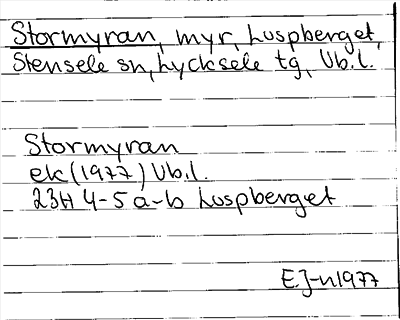 Stormyran, myr, Luspberget,
Stensele sn, Lycksele tg, Vb.l.
Stormyran
ek (1977) Vb.l.
23H 4-5 a-b Luspberget
EJ-n 1977